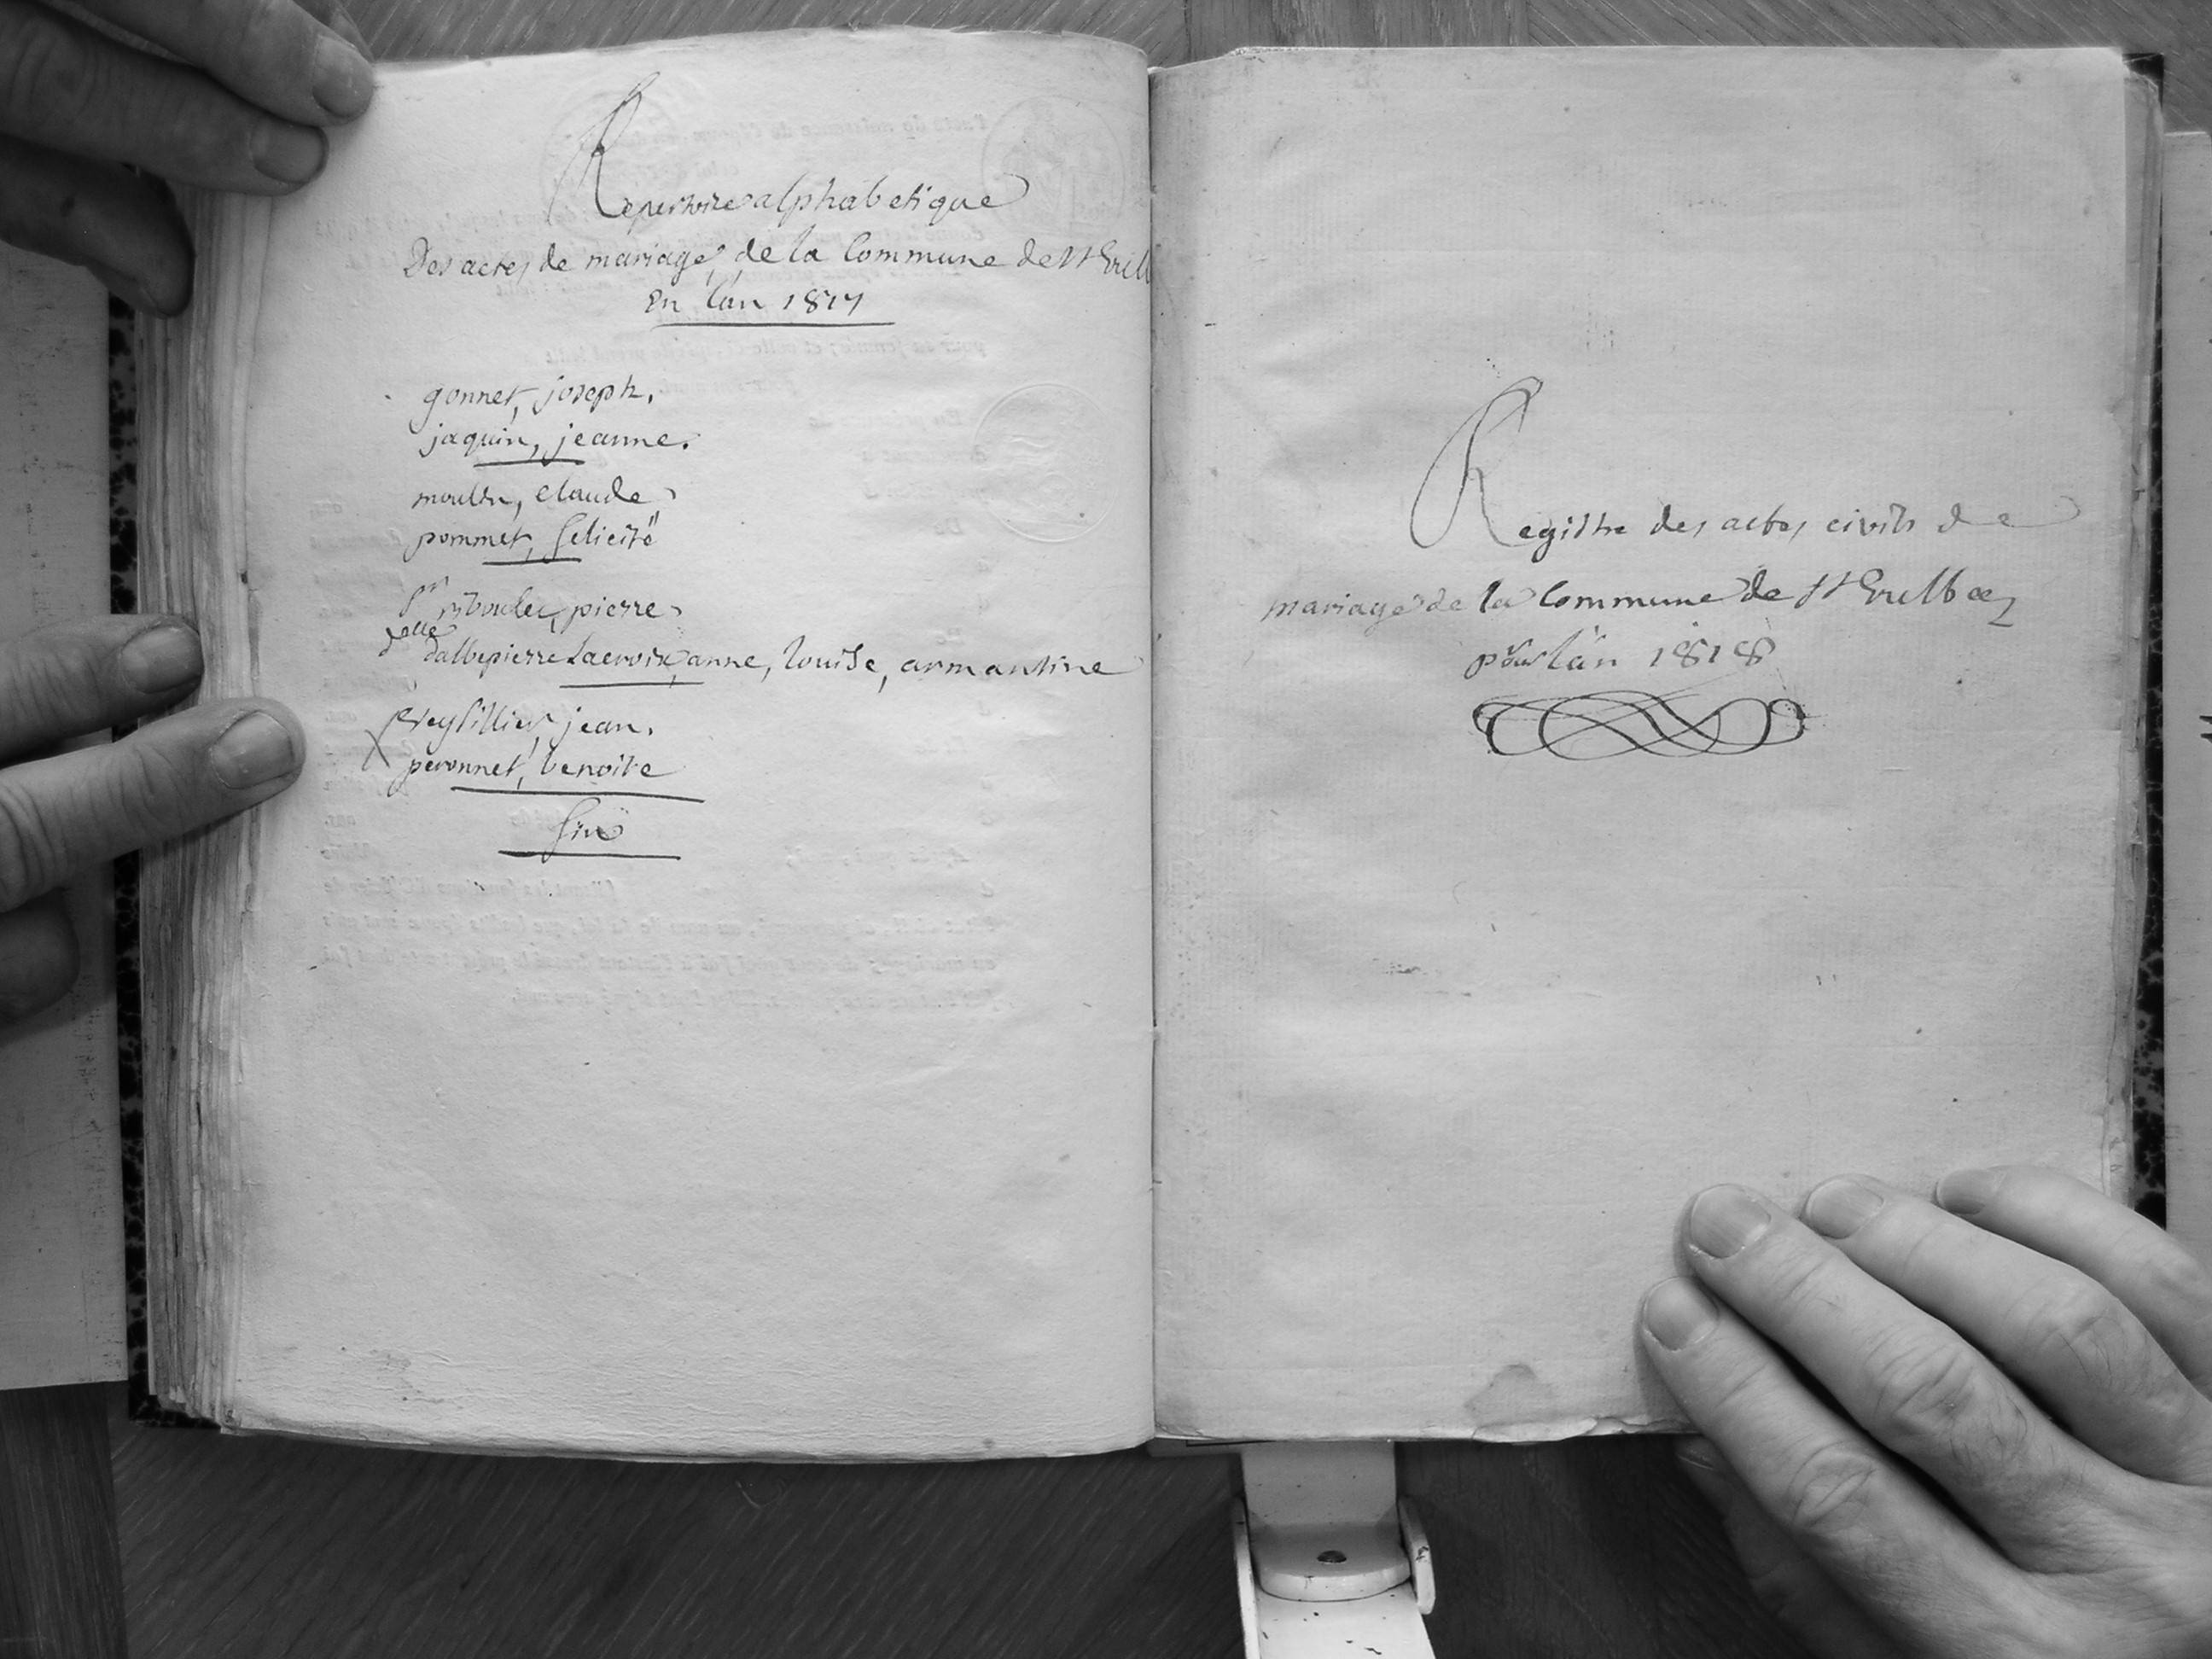 Repertoire alphabetique
Des actes de mariage, de la Commune de St
En l'an 1817
gonnet, joseph.
jaquin, jeanne.
moulin, Claude,
pommet, felicité
Sr riboulet, pierre,
delle
dalbepierre Lacroix, anne, louise, armantine
jean.
peronnet, benoite
fin
Registre des actes civils de
mariage de la Commune de St
pour l'an 1818